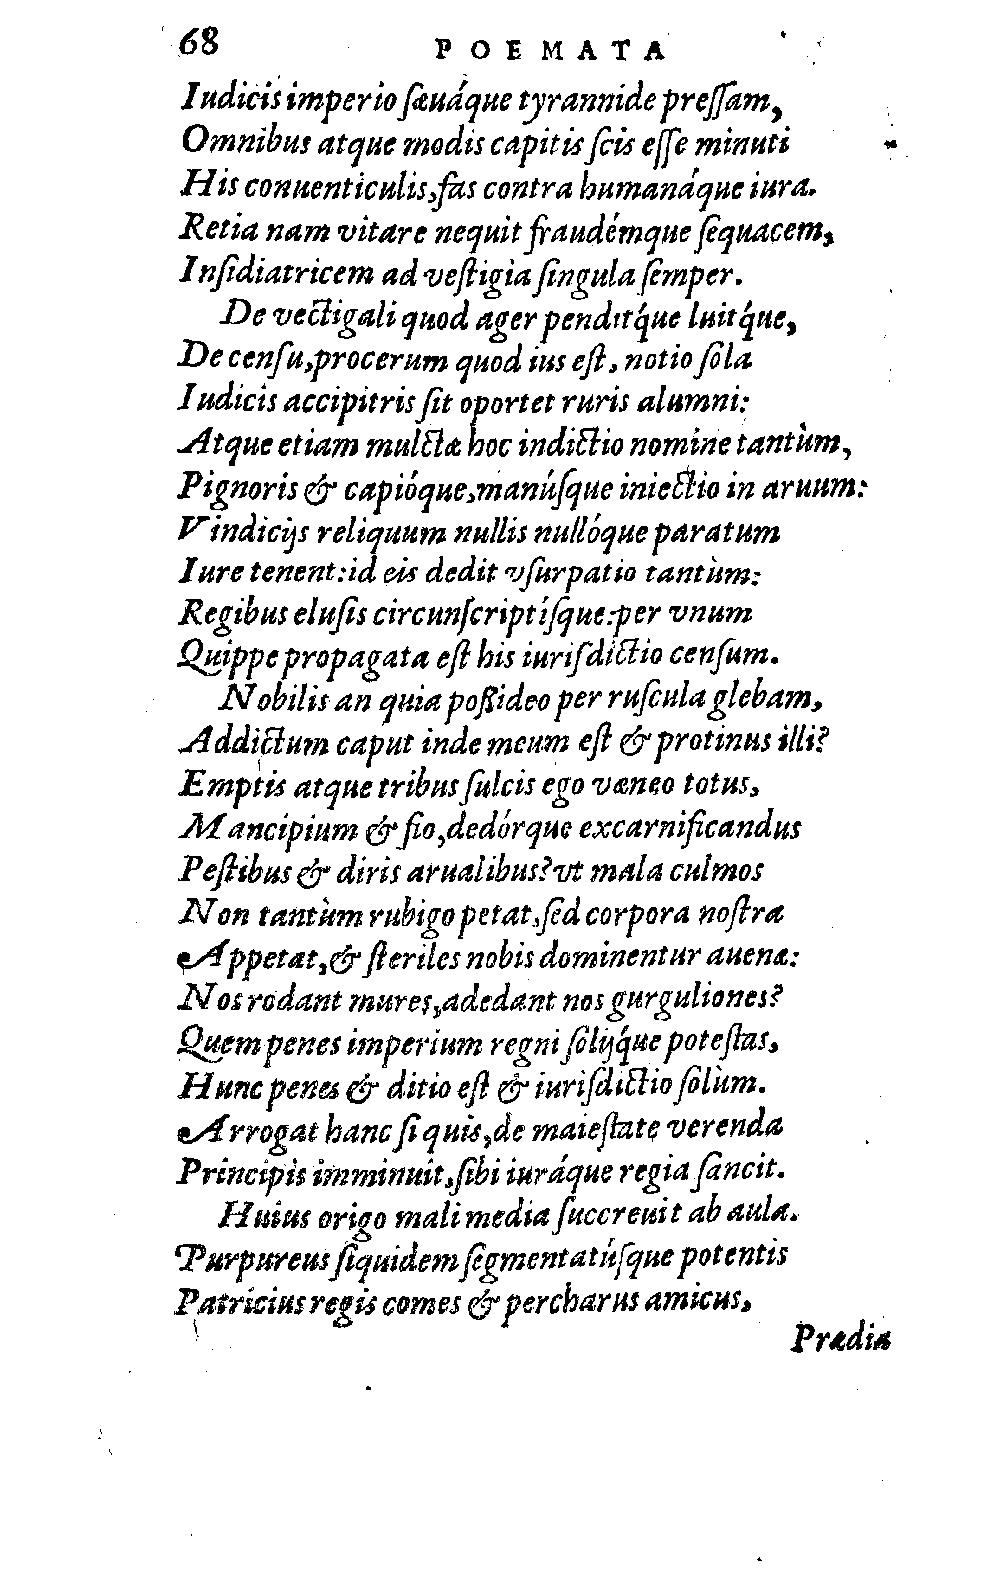 68 POEMATA
Iudicis imperio sæuáque tyrannide pressam,
Omnibus atque modis capitis scis esse minuti
His conuenticulis, fas contra humanáque iura.
Retia nam vitare nequit fraudémque sequacem,
Insidiatricem ad vestigia singula semper.
De vectigali quod ager penditq́ue luitq́ue,
De censu, procerum quod ius est, notio sola
Iudicis accipitris sit oportet ruris alumni:
Atque etiam multæ hoc indictio nomine tantùm,
Pignoris & capióque, manúsque iniectio in aruum:
Vindicijs reliquum nullis nullóque paratum
Iure tenent: id eis dedit vsurpatio tantùm:
Regibus elusis circunscriptísque: per vnum
Quippe propagata est his iurisdictio censum.
Nobilis an quia possideo per ruscula glebam,
Addictum caput inde meum est & protinus illi?
Emptis atque tribus sulcis ego væneo totus,
Mancipium & fio, dedórque excarnificandus
Pestibus & diris arualibus? vt mala culmos
Non tantùm rubigo petat, sed corpora nostra
Appetat, & steriles nobis dominentur auenæ:
Nos rodant mures, adedant nos gurguliones?
Quem penes imperium regni solijq́ue potestas,
Hunc penes & ditio est & iurisdictio solùm.
Arrogat hanc si quis, de maiestate verenda
Principis imminuit, sibi iuráque regia sancit.
Huius origo mali media succreuit ab aula.
Purpureus siquidem segmentatúsque potentis
Patricius regis comes & percharus amicus,
Prædia